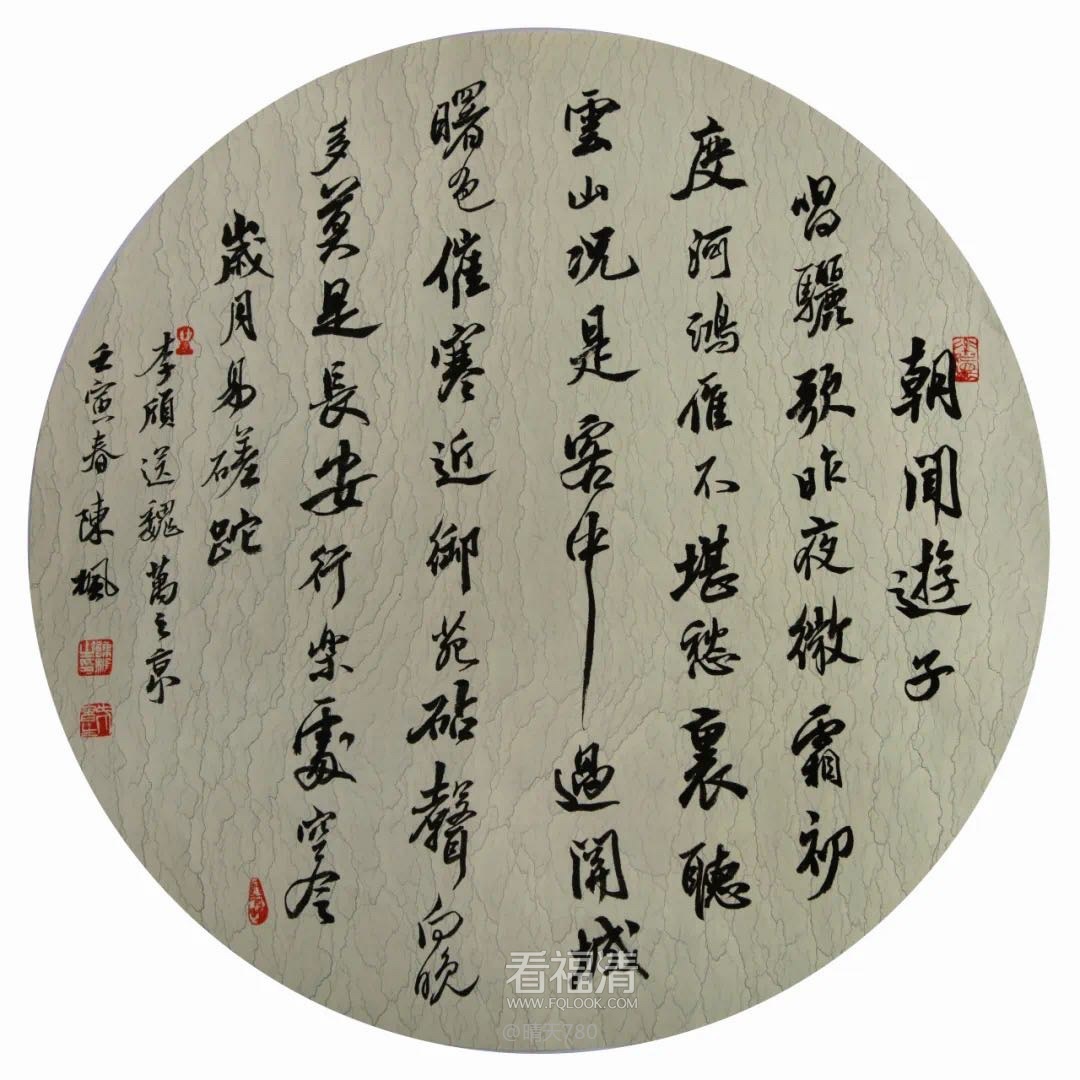 朝聞遊子
唱驪歌昨夜微霜初
度河鴻雁不堪愁裏聽
雲山况是客中過関城
曙色催寒近御苑砧聲向晚
多莫是長安行樂處空令
歲月易磋跎
李頎送魏萬之京
壬寅春陳楓
看福清
WWW.FQLOOK.COM
@晴天780